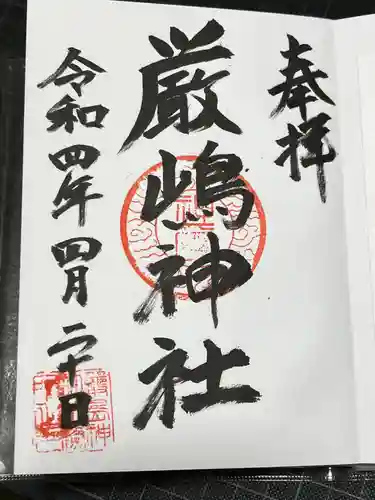 奉拝
厳嶋神社
令和四年四月二十日